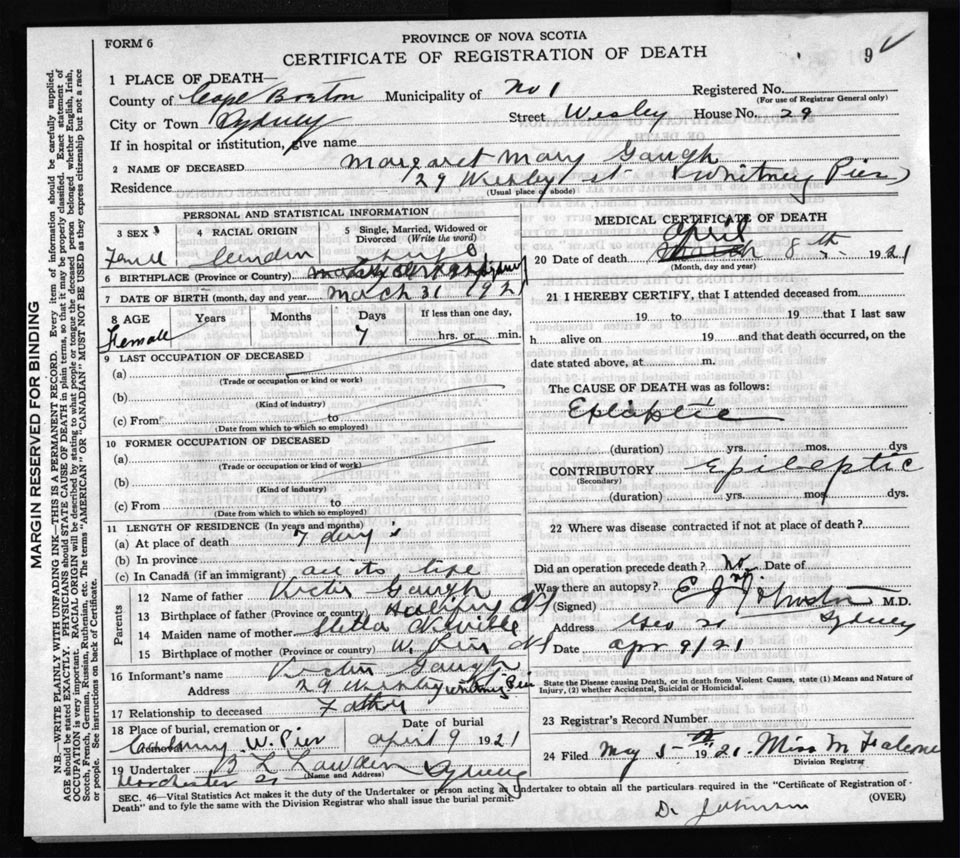 PROVINCE OF NOVA SCOTIA
FORM 6
CERTIFICATE OF REGISTRATION OF DEATH
9
1 PLACE OF DEATH—
County of Cape Breton Municipality of No 1 Registered No.
(For use of Registrar General only)
City or Town Sydney Street Wesley House No. 29
If in hospital or institution, give name
2 NAME OF DECEASED Margaret Mary Gaugh
Residence 29 Wesley st (Whitney Pier)
(Usual place of abode)
PERSONAL AND STATISTICAL INFORMATION
3 SEX 4 RACIAL ORIGIN 5 Single, Married, Widowed or
Divorced (Write the word)
6 BIRTHPLACE (Province or Country) Sydney
7 DATE OF BIRTH (month, day and year) March 31 1921
8 AGE Years Months Days If less than one day,
Female 7 hrs. or min.
9 LAST OCCUPATION OF DECEASED
(a)
(Trade or occupation or kind or work)
(b)
(Kind of industry)
(c) From to
(Date from which to which so employed)
10 FORMER OCCUPATION OF DECEASED
(a)
(Trade or occupation or kind of work)
(b)
(Kind of industry)
(c) From to
(Date from which to which so employed)
11 LENGTH OF RESIDENCE (In years and months)
(a) At place of death 7 day s
(b) In province
(c) In Canada (if an immigrant) all its life
Parents
12 Name of father Victor Gaugh
13 Birthplace of father (Province or country) Halifax NS
14 Maiden name of mother Stella Neville
15 Birthplace of mother (Province or country) W. Pier NS
16 Informant's name Victor Gaugh
Address 29 Wesley Whitney Pier
17 Relationship to deceased Father
18 Place of burial, cremation or Date of burial
W. Pier April 9 1921
19 Undertaker B L Lawden Sydney
(Name and Address)
Dorchester st
MEDICAL CERTIFICATE OF DEATH
April
20 Date of death March 8th 1921
(Month, day and year)
21 I HEREBY CERTIFY, that I attended deceased from
19 to 19 that I last saw
h alive on 19 and that death occurred, on the
date stated above, at m.
The CAUSE OF DEATH was as follows:
Eplaptic
(duration) yrs. mos. dys
CONTRIBUTORY Epileptic
(Secondary)
(duration) yrs. mos. dys.
22 Where was disease contracted if not at place of death?
Did an operation precede death? No Date of
Was there an autopsy? no
(Signed) E J Johnston M.D.
Address Geo st Sydney
Date Apr 9/21
State the Disease causing Death, or in death from Violent Causes, state (1) Means and Nature of
Injury, (2) whether Accidental, Suicidal or Homicidal.
23 Registrar's Record Number
24 Filed May 5th 1921. Miss M Falcone
Division Registrar
SEC. 46—Vital Statistics Act makes it the duty of the Undertaker or person acting as Undertaker to obtain all the particulars required in the "Certificate of Registration of
Death" and to fyle the same with the Division Registrar who shall issue the burial permit.
(OVER)
D. Johnson
MARGIN RESERVED FOR BINDING
N.B.—WRITE PLAINLY WITH UNFADING INK—THIS IS A PERMANENT RECORD. Every item of information should be carefully supplied.
AGE should be stated EXACTLY. PHYSICIANS should STATE CAUSE OF DEATH in plain terms, so that it may be properly classified. Exact statement of
OCCUPATION is very important. RACIAL ORIGIN will be described by stating to what people or tongue the deceased person belonged whether English, Irish,
Scotch, French, German, Russian, Ruthenian, etc. The terms "AMERICAN" OR "CANADIAN" MUST NOT BE USED as they express citizenship but not a race
or people. See instructions on back of Certificate.